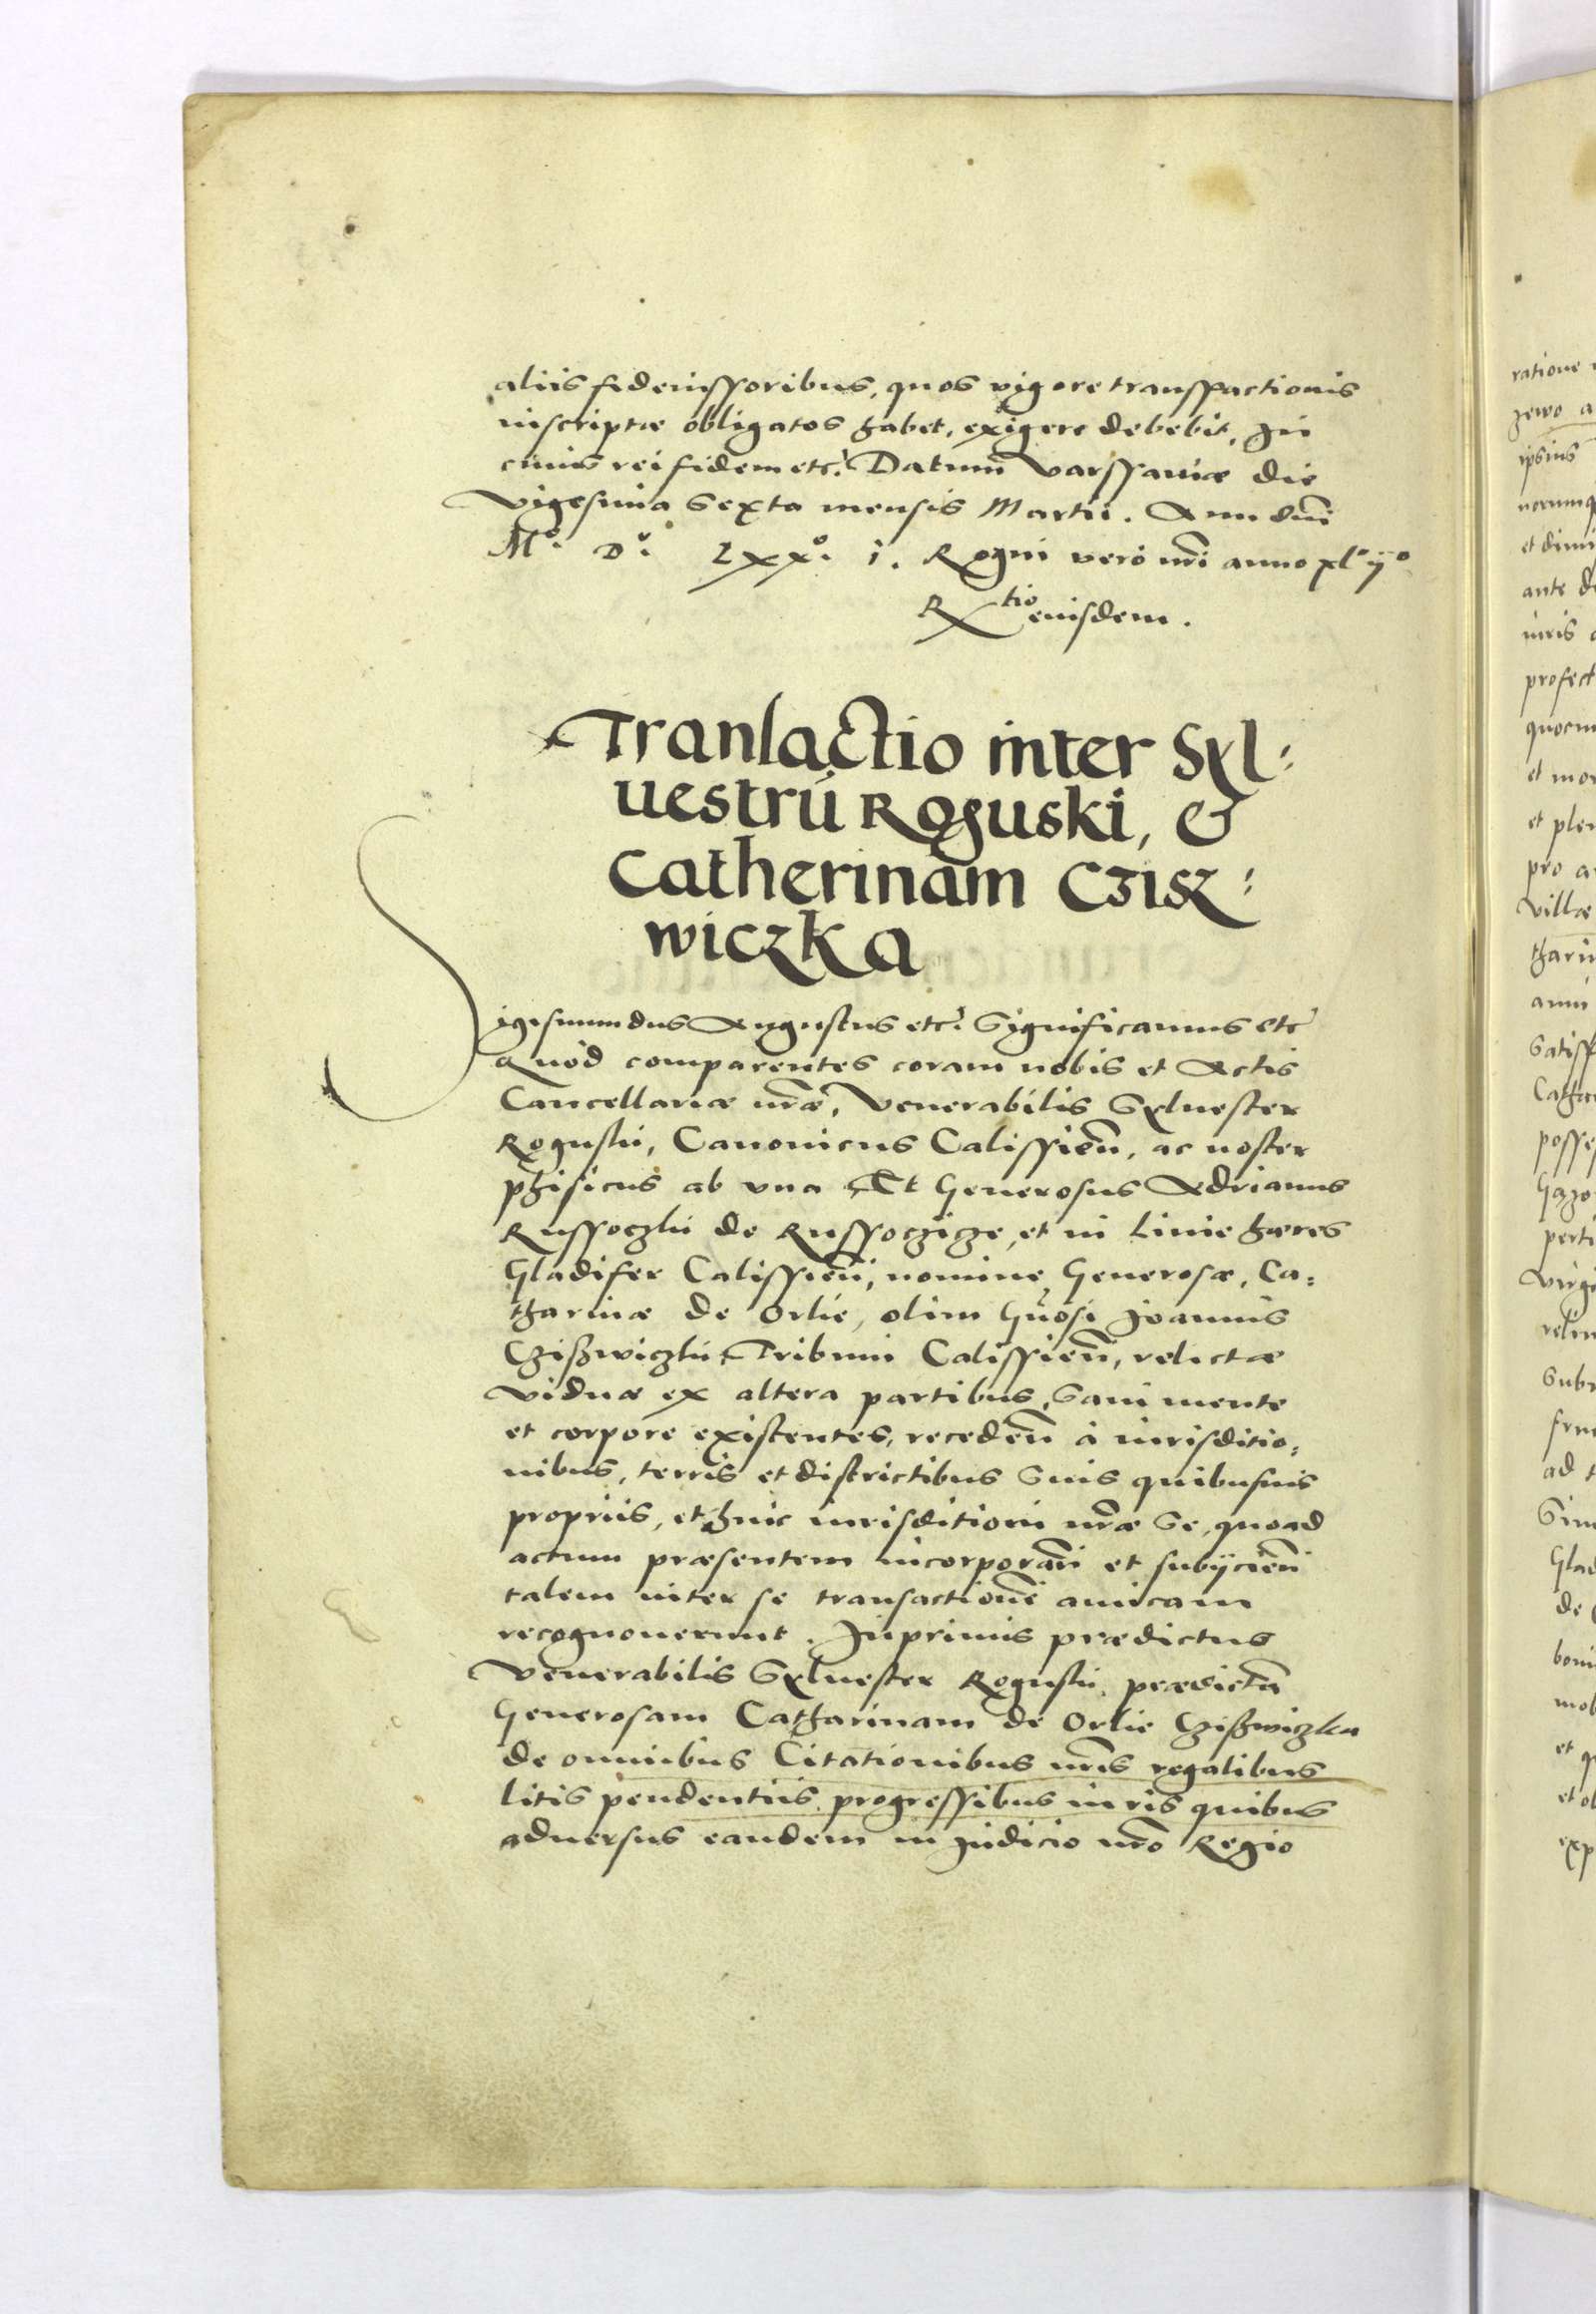 aliis fideiussoribus, quos vigore transsactionis
inscriptæ obligatos habet, exigere debebit, In
cuius rei fidem etc. Datum Varssaviæ die
Vigesima Sexta mensis Martii. Ann dni
M° D° Lxx° i. Regni vero nri anno xl° ij°
Rtio eiusdem.
Transactio inter Syl:
uestrũ Roguski, &
Catherinam Czisz:
wiczka
Sigismundus Augustus etc. Significamus etc
quod comparentes coram nobis et Actis
Cancellariæ nræ, Venerabilis Syluester
Roguski, Canonicus Calissień, ac noster
phisicus ab vna Et Generosus Adrianus
Russoczki de Russoczicze, et in Linie hæres
Gladifer Calissień, nomine Generosæ, Ca:
tharinæ de Orlie, olim Gnosi Joannis
Cziszwiczki Tribuni Calissień, relictæ
Viduæ ex altera partibus, Sani mente
et corpore existentes, recedeñ à iurisditio:
nibus, terris et districtibus Suis quibusuis
propriis, et huic iurisditioni nræ Se, quoad
actum præsentem incorporań et subijcień
talem inter se transactionẽ amicam
recognouerunt. Inprimis prædictus
Venerabilis Syluester Roguski, prædictã
Generosam Catharinam de Orlie Cziszwiczka
de omnibus Citationibus nris regalibus
litis pendentiis progressibus iuris quibus
aduersus eandem in Judicio nro Regio
ratione
zewo a
ipsius
et dimi
ante d
iuris
profect
et mo
et ple
pro a
villæ
thari
satisf
Catha
posse
perti
virgi
subi
ad
Gla
de
boni
mob
et q
et ob
exp